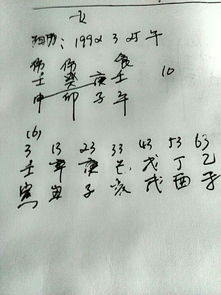 阳历：1992 3 25 午
伤 伤 食
壬 癸 庚 壬 10
申 卯 子 午
(6)
3 13 23 33 43 53 63
壬 辛 庚 己 戊 丁
寅 丑 子 亥 戌 酉